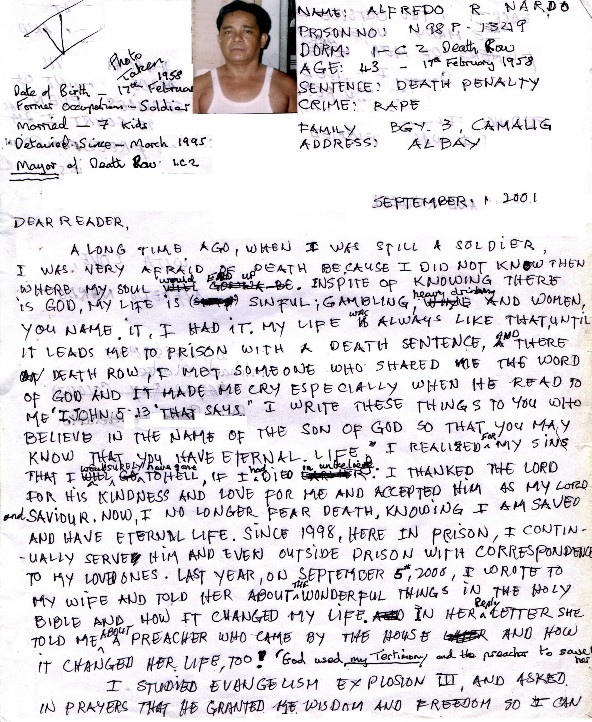 NAME: ALFREDO R. NARDO
PRISON NO: N98P-13219
DORM: 1-C2 Death Row
AGE: 43 - 17th February 1958
SENTENCE: DEATH PENALTY
CRIME: RAPE
FAMILY BGY. 3, CAMALIG
ADDRESS: ALBAY
Photo
Taken
1958
Date of Birth - 17th Februar
Former Occupation - Soldier
Married - 7 Kids
Detained Since - March 1995
Mayor of Death Row 1.C2
SEPTEMBER 1 2001
DEAR READER,
A LONG TIME AGO, WHEN I WAS STILL A SOLDIER,
I WAS VERY AFRAID OF DEATH BECAUSE I DID NOT KNOW THEN
WHERE MY SOUL would END UP. INSPITE OF KNOWING THERE
IS GOD, MY LIFE IS SINFUL; GAMBLING, heavy drinking AND WOMEN,
YOU NAME IT, I HAD IT. MY LIFE WAS ALWAYS LIKE THAT, UNTIL
IT LEADS ME TO PRISON WITH A DEATH SENTENCE, AND THERE
ON DEATH ROW, I MET SOMEONE WHO SHARED ME THE WORD
OF GOD AND IT MADE ME CRY ESPECIALLY WHEN HE READ TO
ME "I JOHN 5-13" THAT SAYS "I WRITE THESE THINGS TO YOU WHO
BELIEVE IN THE NAME OF THE SON OF GOD SO THAT YOU MAY
KNOW THAT YOU HAVE ETERNAL LIFE." I REALIZED FOR MY SINS
THAT I would SURELY have gone TO HELL, IF I had DIED in unbelief. I THANKED THE LORD
FOR HIS KINDNESS AND LOVE FOR ME AND ACCEPTED HIM AS MY LORD
and SAVIOUR. NOW, I NO LONGER FEAR DEATH, KNOWING I AM SAVED
AND HAVE ETERNAL LIFE. SINCE 1998, HERE IN PRISON, I CONTIN-
UALLY SERVE HIM AND EVEN OUTSIDE PRISON WITH CORRESPONDENCE
TO MY LOVED ONES. LAST YEAR, ON SEPTEMBER 5th, 2000, I WROTE TO
MY WIFE AND TOLD HER ABOUT THE WONDERFUL THINGS IN THE HOLY
BIBLE AND HOW IT CHANGED MY LIFE. IN HER Reply LETTER SHE
TOLD ME ABOUT A PREACHER WHO CAME BY THE HOUSE AND HOW
IT CHANGED HER LIFE, TOO! God used my Testimony and the preacher to save her
I STUDIED EVANGELISM EXPLOSION III, AND ASKED
IN PRAYERS THAT HE GRANTED ME WISDOM AND FREEDOM SO I CAN